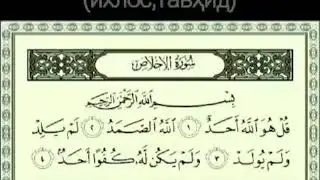 (ихлос,тавҳид)
سُورَةُ الإِخْلَاصِ
بِسْمِ اللَّهِ الرَّحْمَٰنِ الرَّحِيمِ
قُلْ هُوَ اللَّهُ أَحَدٌ ١ اللَّهُ الصَّمَدُ ٢ لَمْ يَلِدْ
وَلَمْ يُولَدْ ٣ وَلَمْ يَكُن لَّهُ كُفُوًا أَحَدٌ ٤